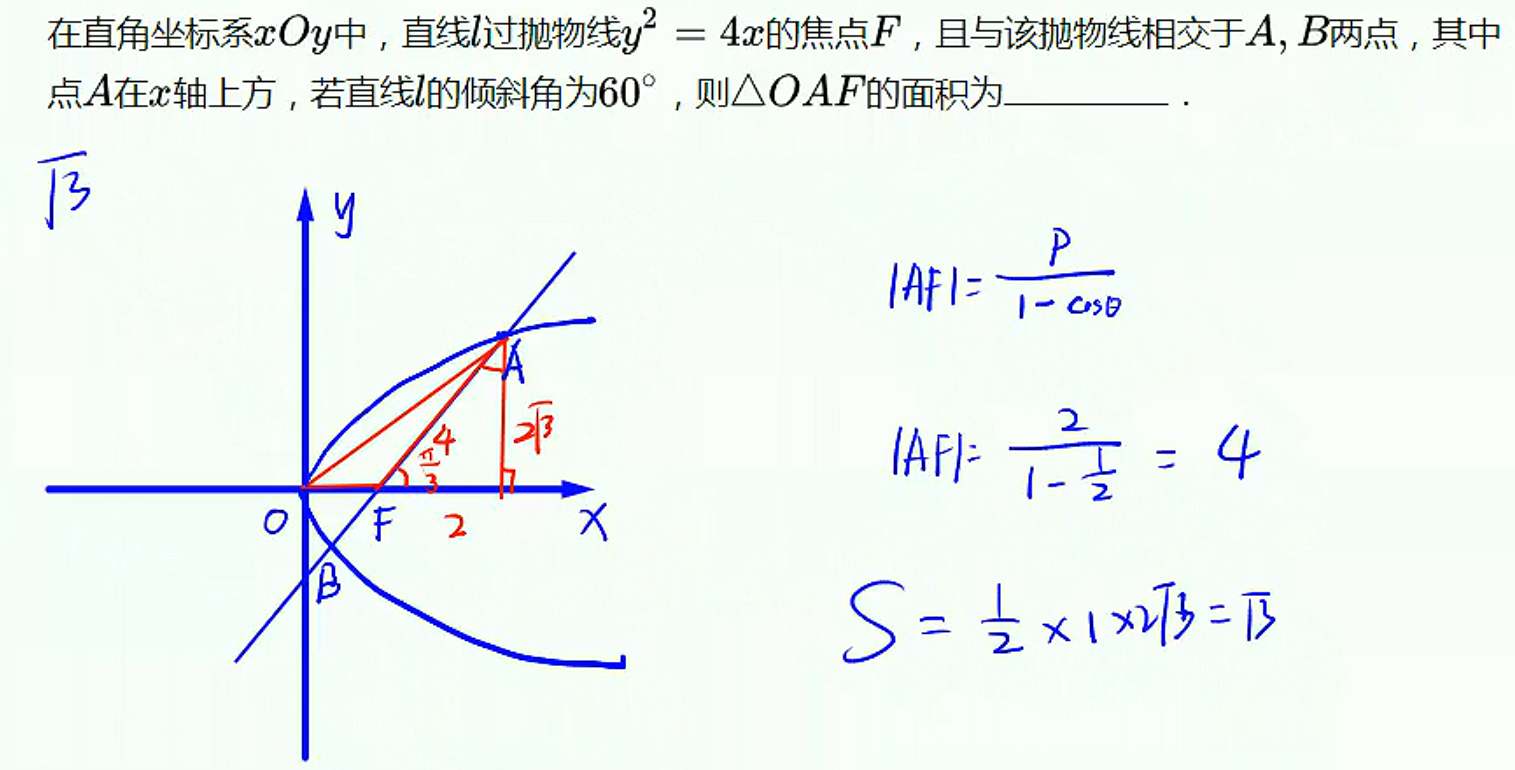 在直角坐标系xOy中，直线l过抛物线y² = 4x的焦点F，且与该抛物线相交于A, B两点，其中
点A在x轴上方，若直线l的倾斜角为60°，则△OAF的面积为________．
√3
y
|AF| = P/(1 - cosθ)
A
4
π/3
2√3
|AF| = 2/(1 - 1/2) = 4
O
F
2
x
B
S = 1/2 × 1 × 2√3 = √3